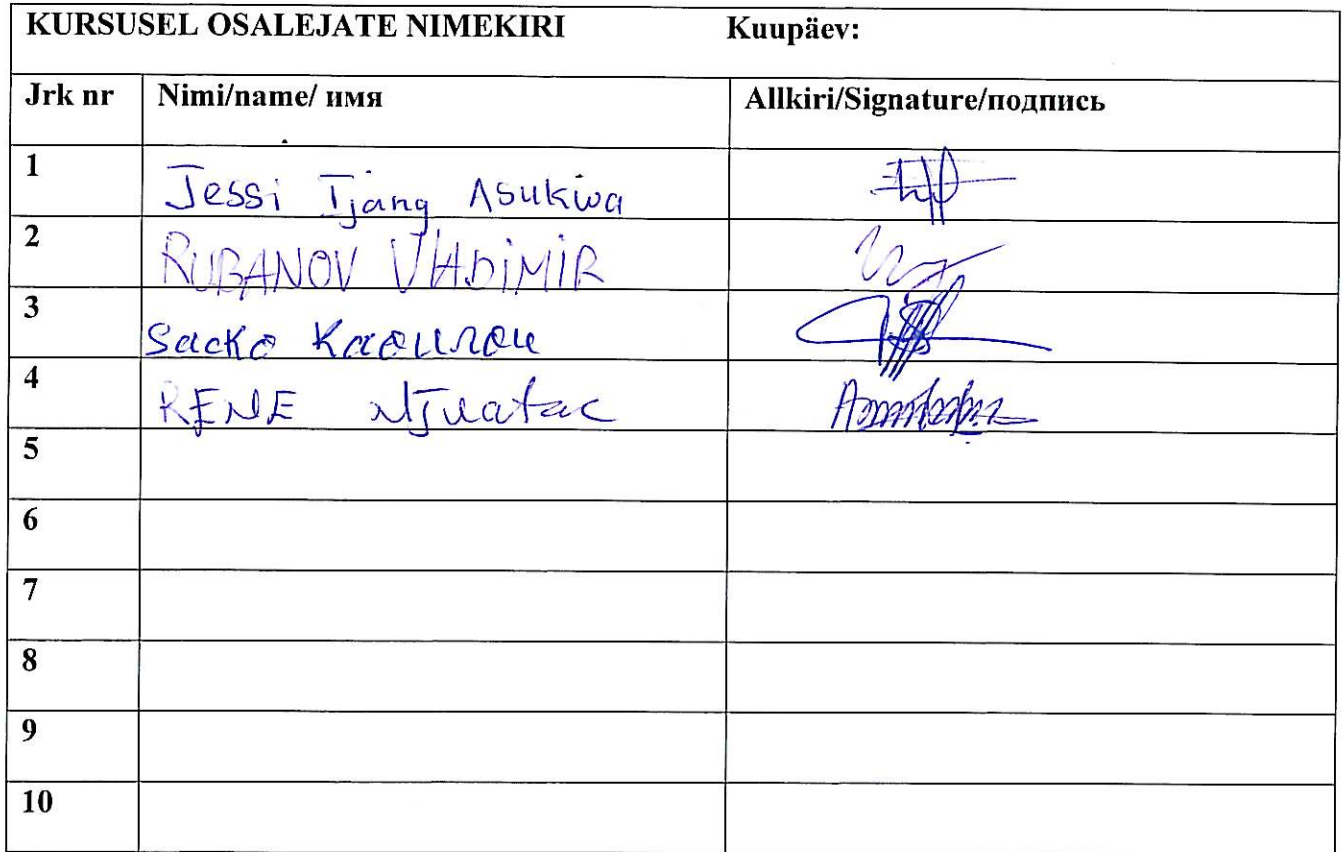 KURSUSEL OSALEJATE NIMEKIRI Kuupäev:
Jrk nr Nimi/name/ имя Allkiri/Signature/подпись
1 Jessi Tjang Asukwa
2 RUBANOV VLADIMIR
3 Sacko
4 RENE
5
6
7
8
9
10